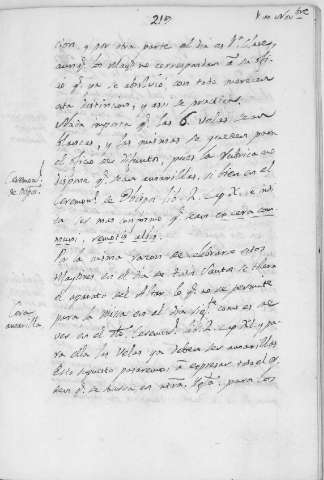 217
1º en Novbre
cion, y por otra parte el dia es 1ª Clase,
aunq. los Maytines no corresponden á su ofi-
cio q. ya se absolvió, con todo merecen
esta distincion, y assi se practica.
Nada importa q. las 6 velas sean
blancas, y las mismas se queden para
el oficio de difuntos, pues la rubrica no
dispone q. sean amarillas, si bien en el
Ceremonl. de Obispos lib. 2. cap. X. se no-
ta ser mas conforme q. sean en cera com-
mun, remotis aliis.
Ceremonl.
de Obisps.
Por la misma razon de celebrarse estos
Maytines en el dia de Todos Santos se
el aparato del Altar, lo q. no se permite
para la misa en el dia sigte. como es de
ver en el Cereml. lib. 2. cap. XI. y pa-
ra ella las velas ya deben ser amarillas.
Cera
amarilla
Esto supuesto pasaremos á expresar todo el or-
den q. se busca en otra Yglª. para los